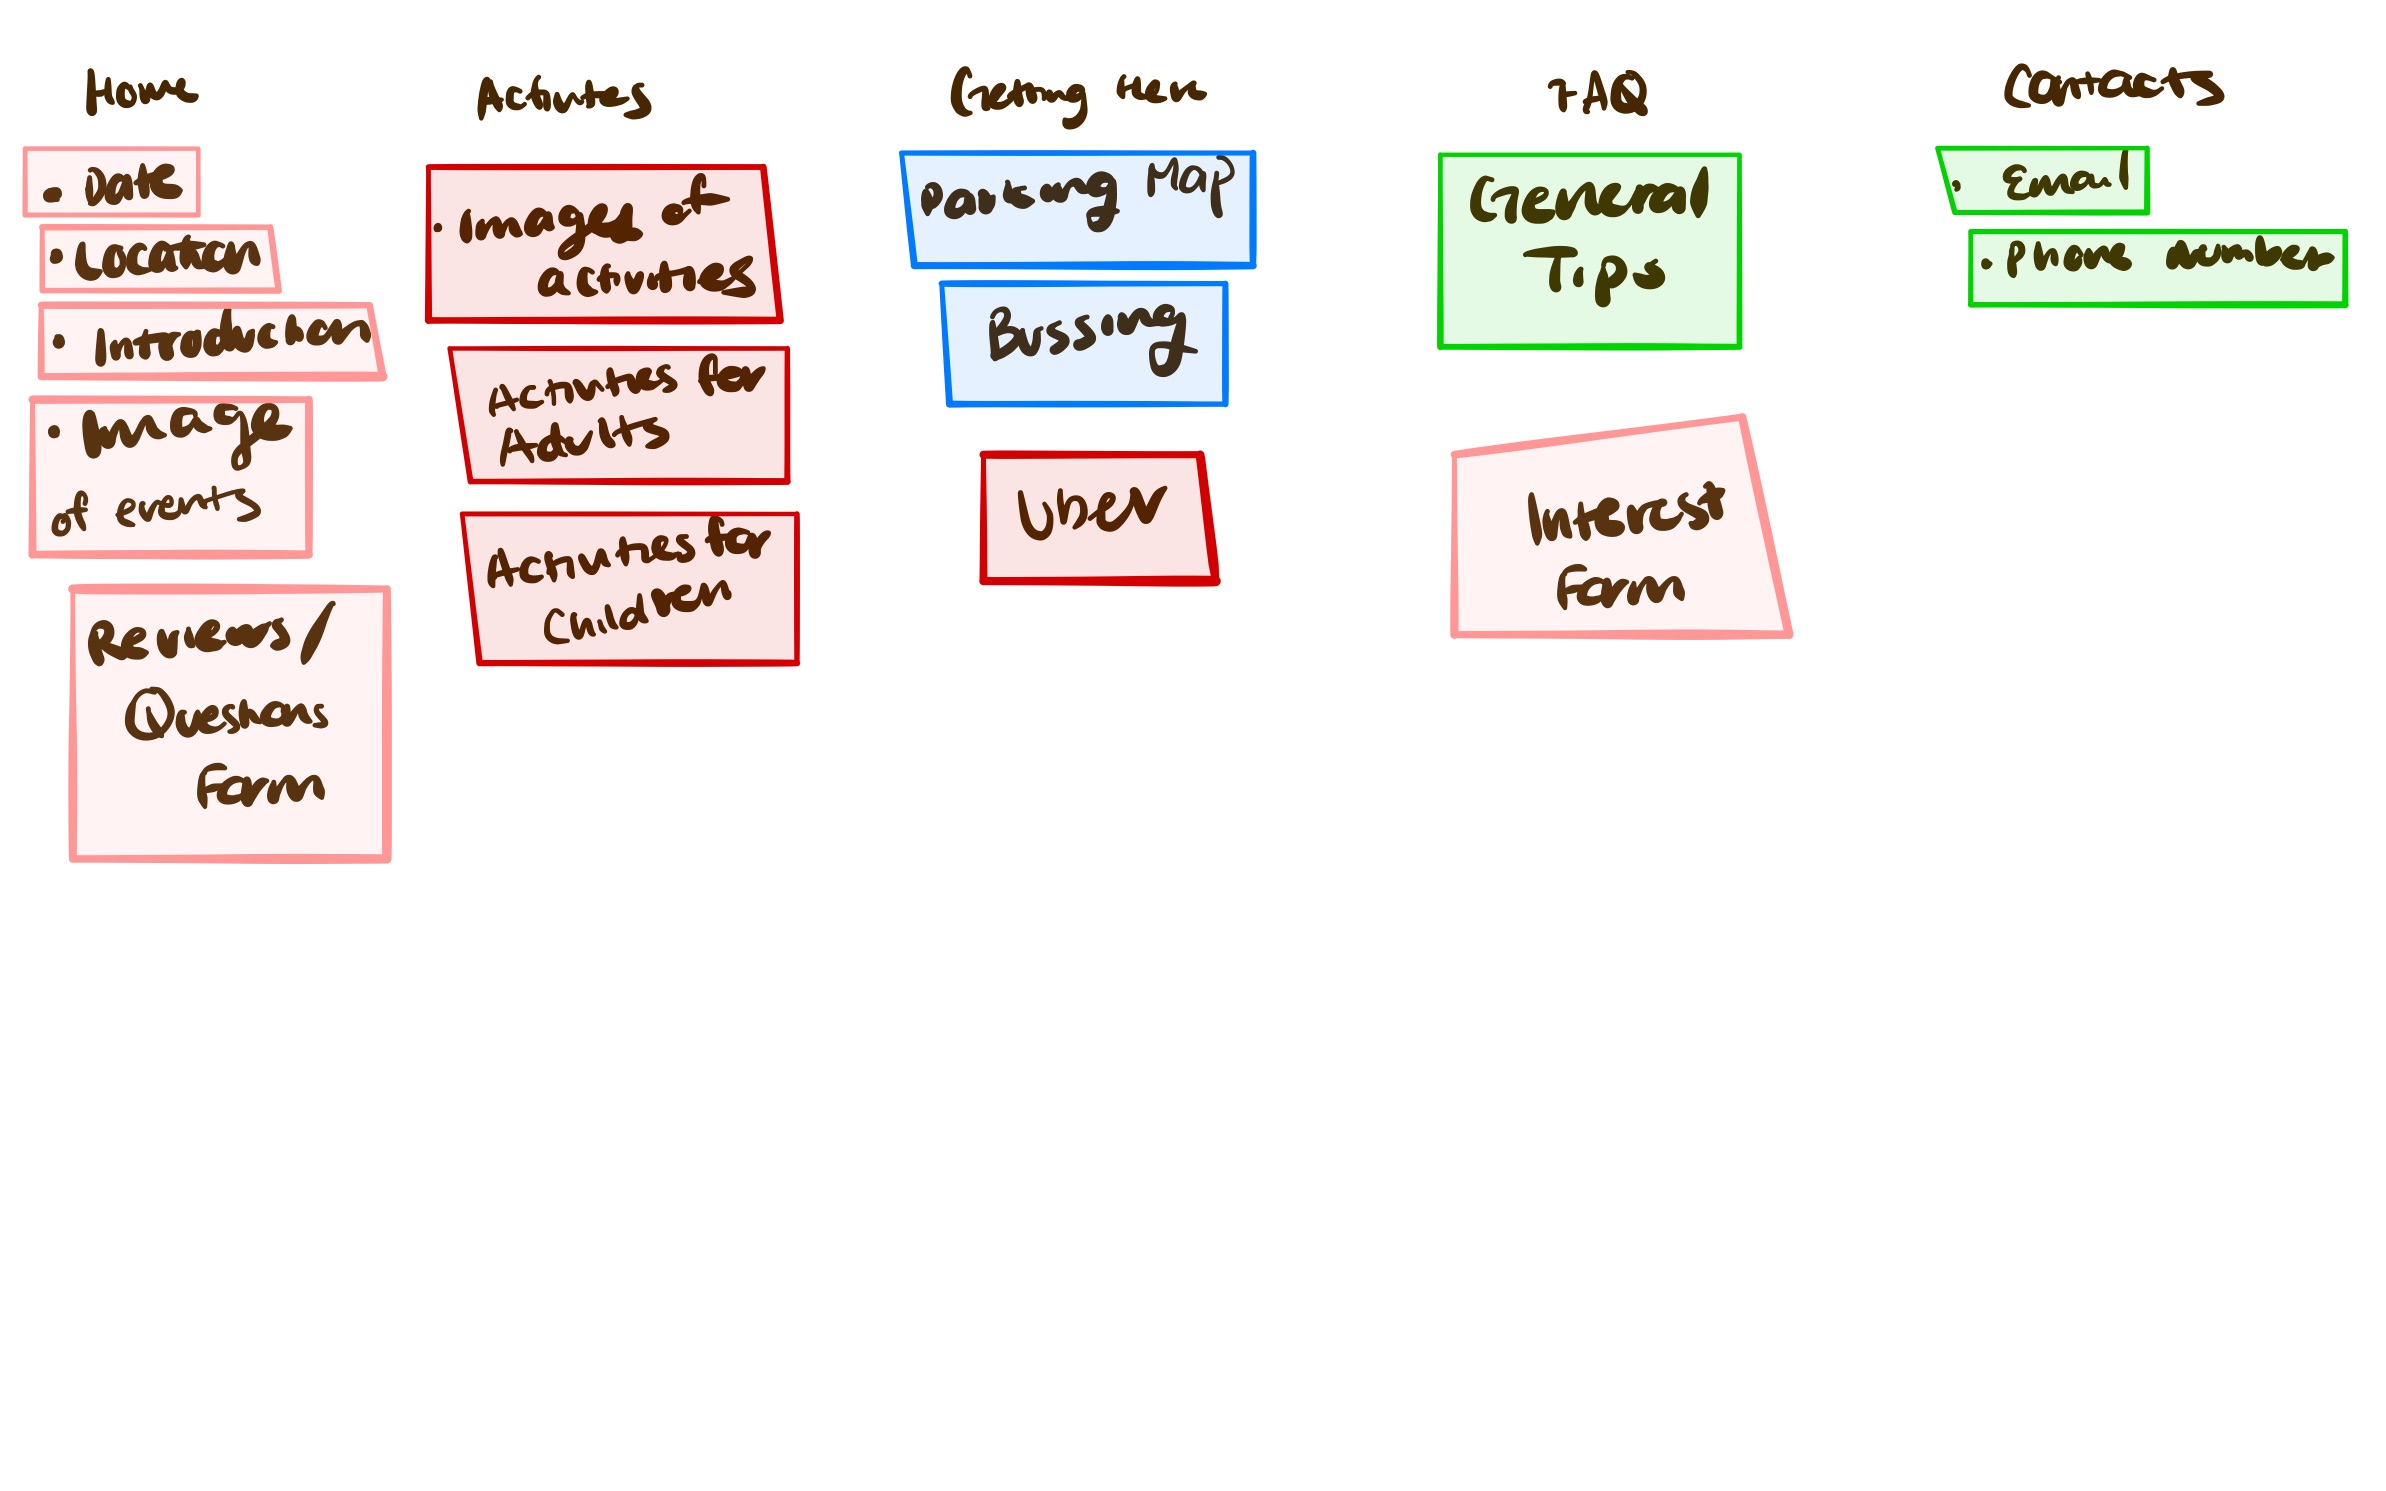 Home
• Date
• Location
• Introduction
• Image
of events
Reviews/
Questions
Form
Activities
• Images of
activities
Activities for
Adults
Activities for
Children
Getting here
Parking Map
Bussing
Uber
FAQ
General
Tips
Interest
Form
Contacts
• Email
• Phone number